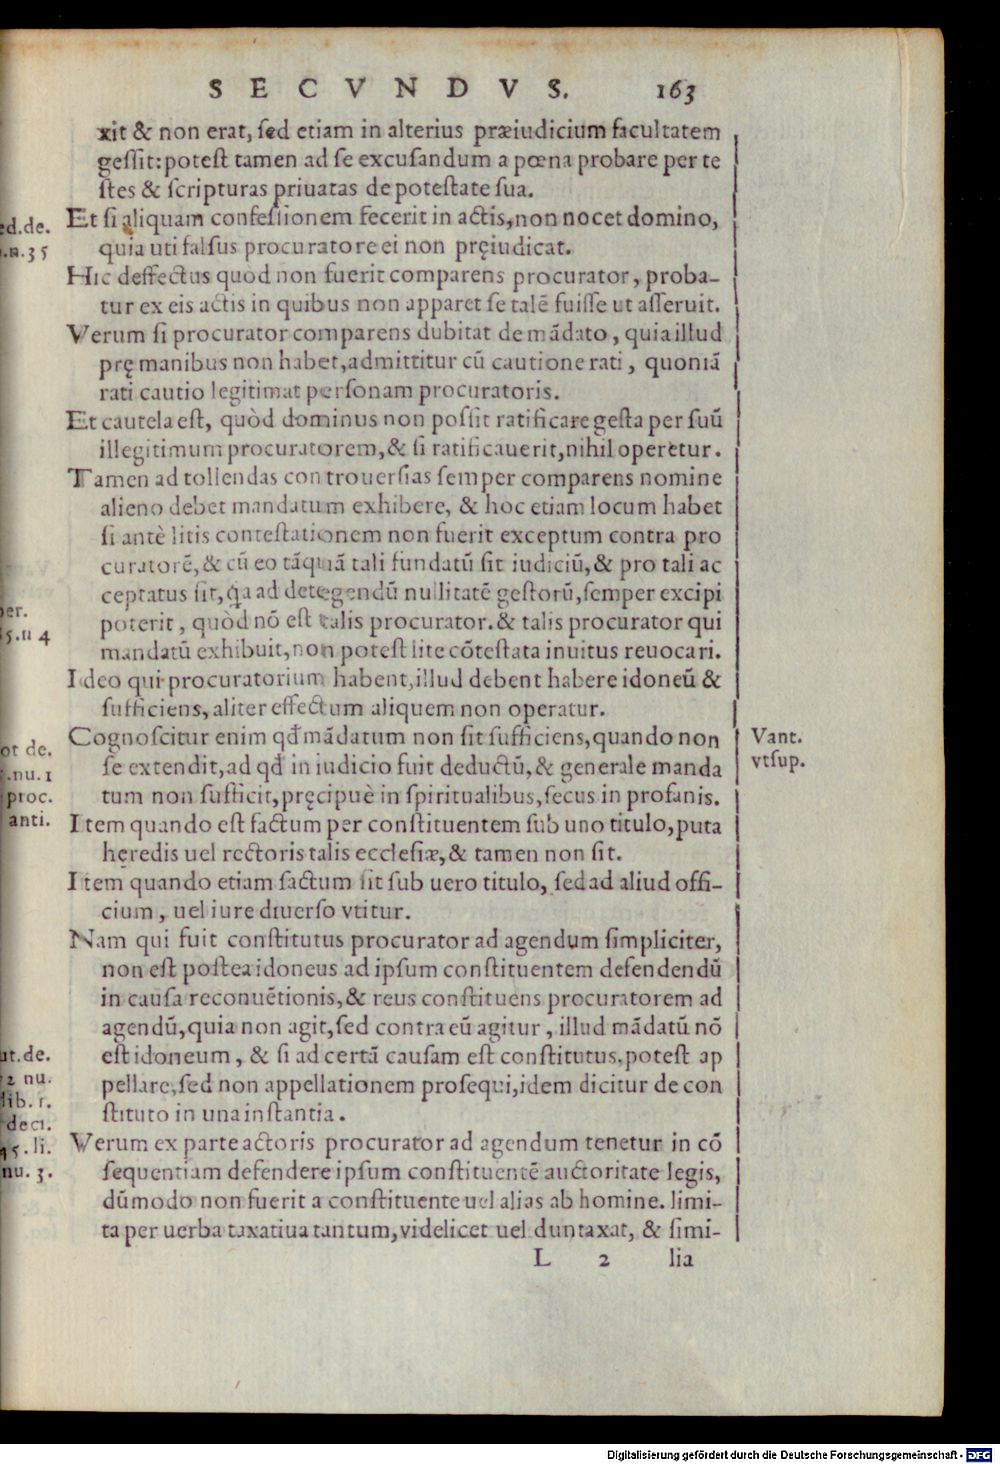 SECVNDVS. 163
xit & non erat, sed etiam in alterius præiudicium facultatem
gessit: potest tamen ad se excusandum a pœna probare per te
stes & scripturas priuatas de potestate sua.
Et si aliquam confessionem fecerit in actis, non nocet domino,
quia uti falsus procuratore ei non pręiudicat.
Hic deffectus quod non fuerit comparens procurator, proba-
tur ex eis actis in quibus non apparet se talē fuisse ut asseruit.
Verum si procurator comparens dubitat de mādato, quia illud
prę manibus non habet, admittitur cū cautione rati, quoniā
rati cautio legitimat personam procuratoris.
Et cautela est, quòd dominus non possit ratificare gesta per suū
illegitimum procuratorem, & si ratificauerit, nihil operetur.
Tamen ad tollendas controuersias semper comparens nomine
alieno debet mandatum exhibere, & hoc etiam locum habet
si antè litis contestationem non fuerit exceptum contra pro
curatorē, & cū eo tāquā tali fundatū sit iudiciū, & pro tali ac
ceptatus sit, q̄a ad detegendū nullitatē gestorū, semper excipi
poterit, quòd nō est talis procurator. & talis procurator qui
mandatū exhibuit, non potest lite cōtestata inuitus reuocari.
Ideo qui procuratorium habent, illud debent habere idoneū &
sufficiens, aliter effectum aliquem non operatur.
Cognoscitur enim qđ mādatum non sit sufficiens, quando non
se extendit, ad qđ in iudicio fuit deductū, & generale manda
tum non sufficit, pręcipuè in spiritualibus, secus in profanis.
Item quando est factum per constituentem sub uno titulo, puta
heredis uel rectoris talis ecclesiæ, & tamen non sit.
Item quando etiam factum sit sub uero titulo, sed ad aliud offi-
cium, uel iure diuerso vtitur.
Nam qui fuit constitutus procurator ad agendum simpliciter,
non est postea idoneus ad ipsum constituentem defendendū
in causa reconuētionis, & reus constituens procuratorem ad
agendū, quia non agit, sed contra eū agitur, illud mādatū nō
est idoneum, & si ad certā causam est constitutus, potest ap
pellare, sed non appellationem prosequi, idem dicitur de con
stituto in una instantia.
Verum ex parte actoris procurator ad agendum tenetur in cō
sequentiam defendere ipsum constituentē auctoritate legis,
dūmodo non fuerit a constituente uel alias ab homine. limi-
ta per uerba taxatiua tantum, videlicet uel duntaxat, & simi-
L 2 lia
Vant.
vtsup.
ed.de.
.n.35
per.
5.n 4
ot de.
.nu.1
proc.
anti.
ut.de.
2 nu.
lib. r.
deci.
45. li.
nu. 3.
Digitalisierung gefördert durch die Deutsche Forschungsgemeinschaft - DFG